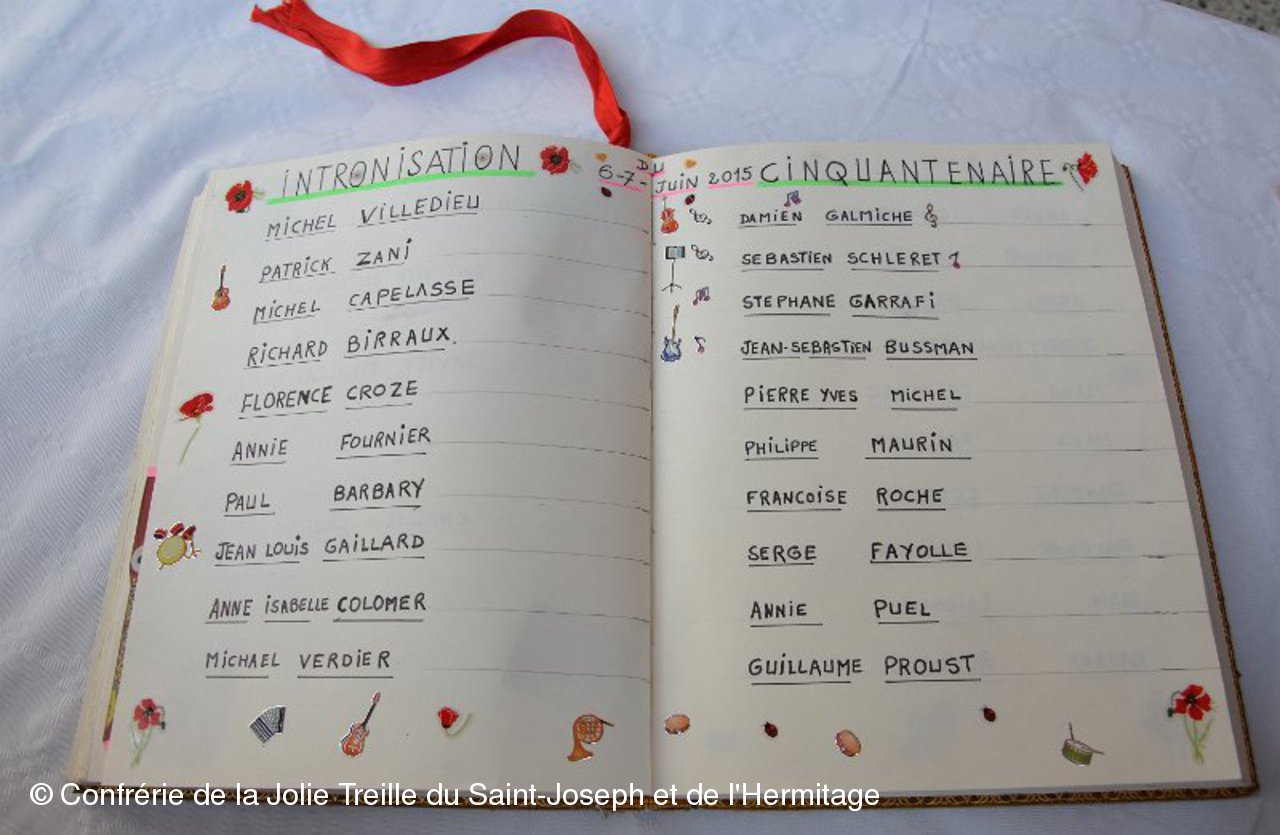 INTRONISATION DU CINQUANTENAIRE
6-7- JUIN 2015
MICHEL VILLEDIEU
PATRICK ZANI
MICHEL CAPELASSE
RICHARD BIRRAUX.
FLORENCE CROZE
ANNIE FOURNIER
PAUL BARBARY
JEAN LOUIS GAILLARD
ANNE ISABELLE COLOMER
MICHAEL VERDIER
DAMIEN GALMICHE
SEBASTIEN SCHLERET
STEPHANE GARRAFI
JEAN-SEBASTIEN BUSSMAN
PIERRE YVES MICHEL
PHILIPPE MAURIN
FRANCOISE ROCHE
SERGE FAYOLLE
ANNIE PUEL
GUILLAUME PROUST
© Confrérie de la Jolie Treille du Saint-Joseph et de l'Hermitage